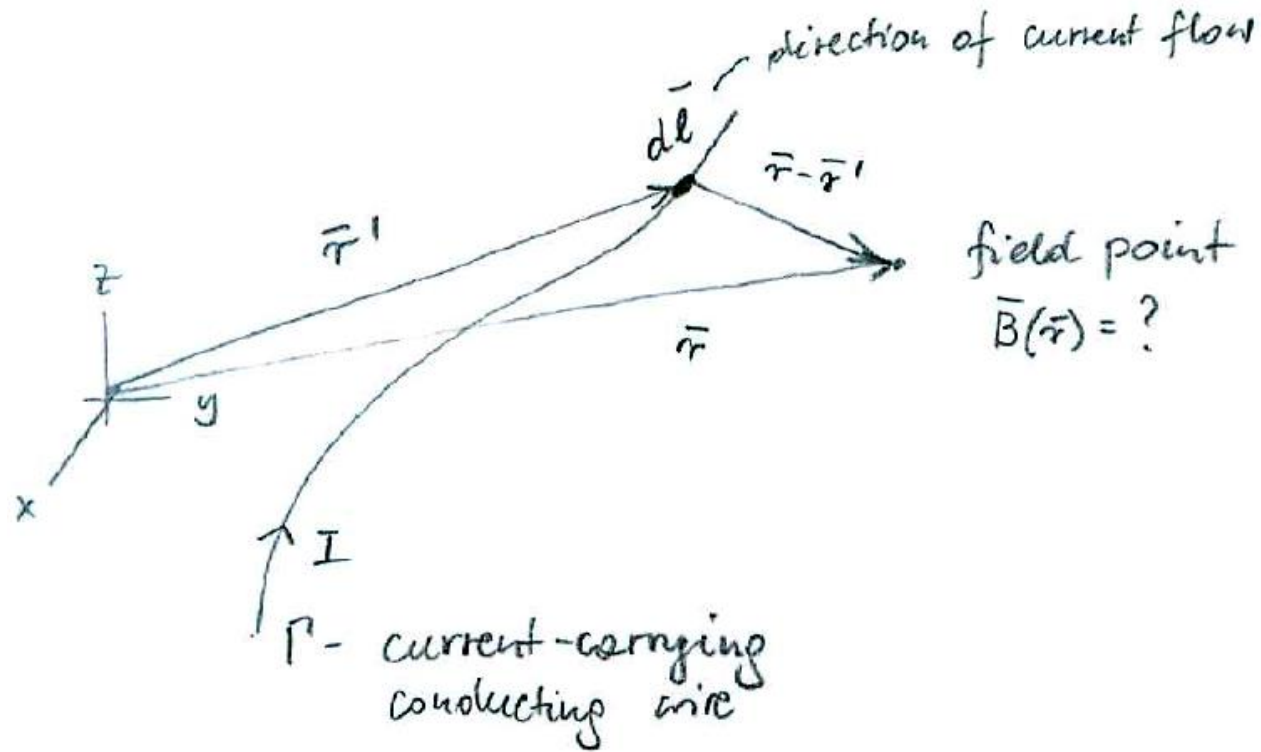 direction of current flow
dl̄
r̄-r̄'
r̄'
z
field point
B̄(r̄) = ?
r̄
y
x
I
Γ - current-carrying
conducting wire